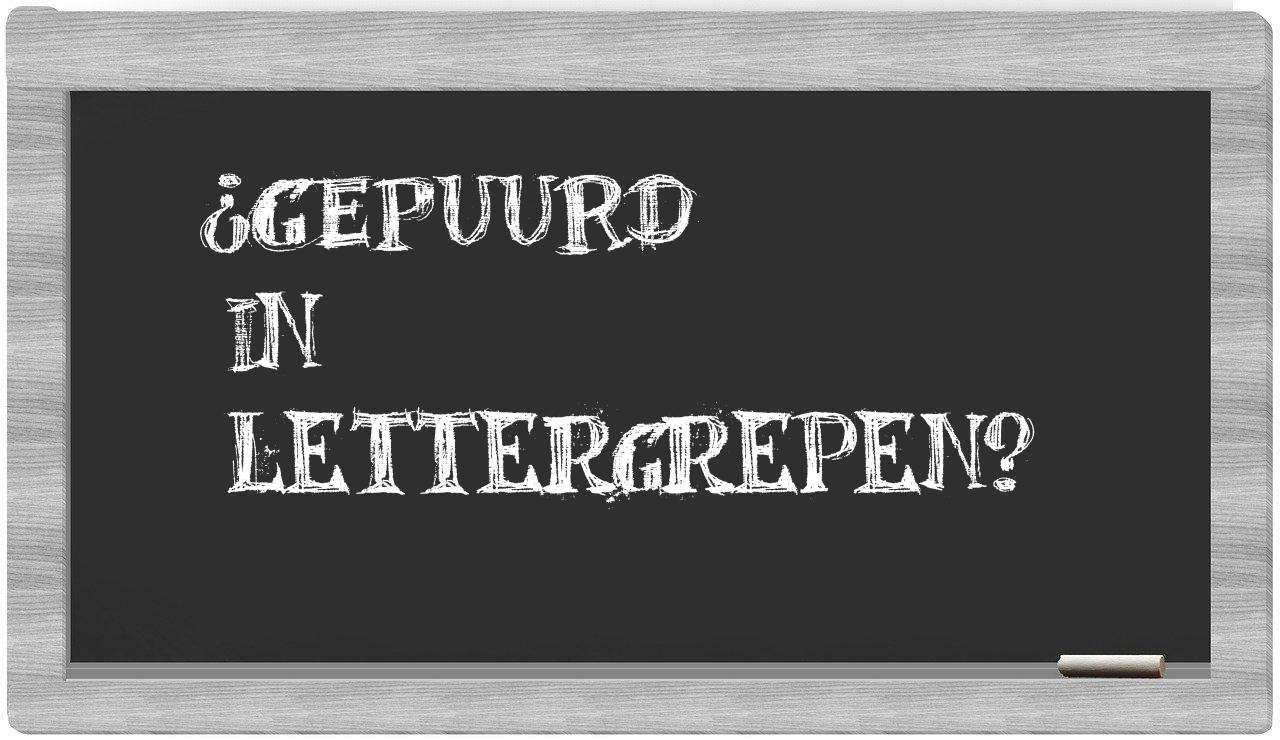 ¿GEPUURD
IN
LETTERGREPEN?